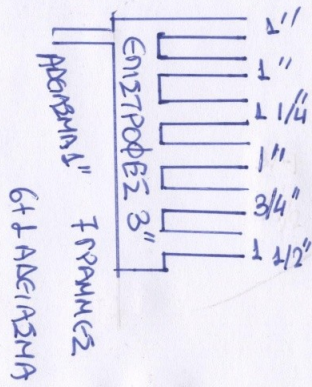 1"
1"
1 1/4"
1"
3/4"
1 1/2"
ΕΠΙΣΤΡΟΦΕΣ 3"
ΑΔΕΙΑΣΜΑ 1"
7 ΓΡΑΜΜΕΣ
6+1 ΑΔΕΙΑΣΜΑ